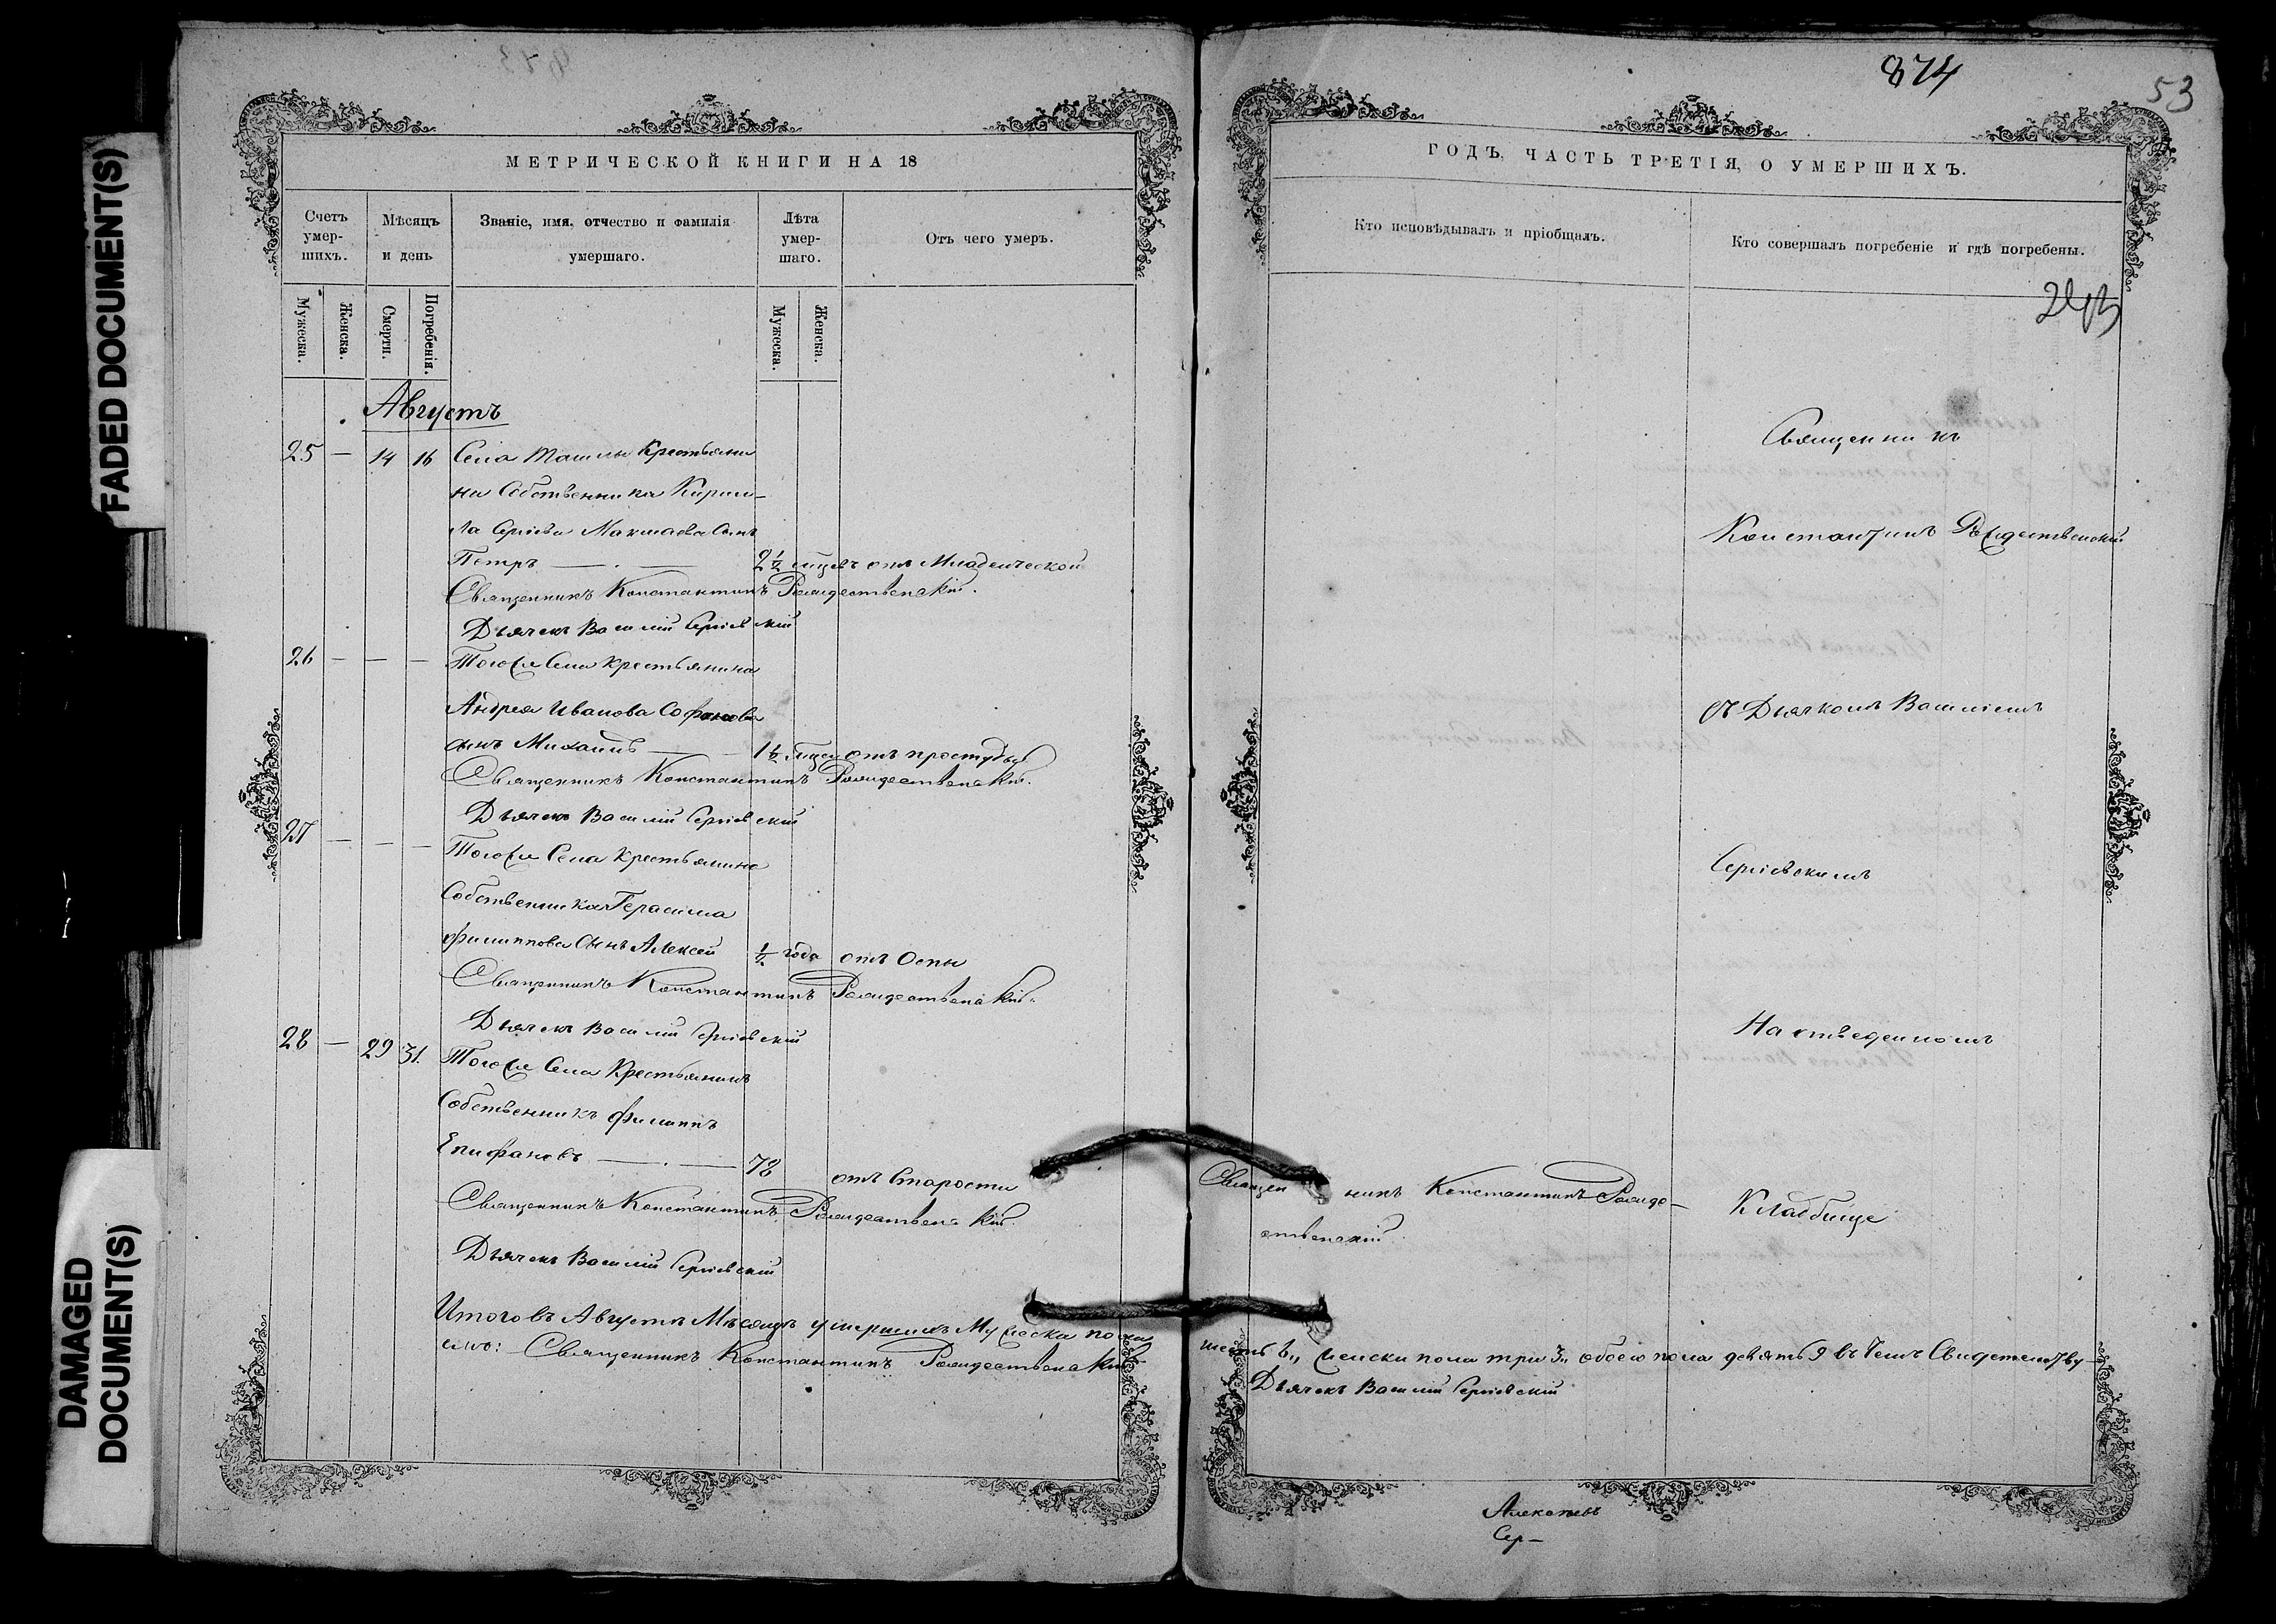 FADED DOCUMENT(S)
DAMAGED
DOCUMENT(S)
МЕТРИЧЕСКОЙ КНИГИ НА 18
Счетъ умер-шихъ.
Мѣсяцъ и день
Званіе, имя, отчество и фамилія умершаго.
Лѣта умер-шаго.
Отъ чего умеръ.
Мужеска.
Женска.
Смерти.
Погребенія.
Мужеска.
Женска.
Августъ
25 — 14 16 Села Ташлы Крестьяни
на Собственника Кирил-
ла Сергіева Макшаева Сынъ
Петръ — . — 2 1/2 мѣсяц отъ Младенческой
Священникъ Константинъ Рождественскій.
Дьячекъ Василій Сергіевскій
26 — — — Тогоже Села крестьянина
Андрея Иванова Софонова
сынъ Михаилъ — — 1 1/2 мѣсяц отъ простуды
Священникъ Константинъ Рождественскій.
Дьячекъ Василій Сергіевскій
27 — — — Тогоже Села крестьянина
Собственника Герасима
Филиппова Сынъ Алексей 1/2 года отъ Оспы
Священникъ Константинъ Рождественскій.
Дьячекъ Василій Сергіевскій
28 — 29 31. Тогоже Села Крестьянинъ
Собственникъ Филиппъ
Епифановъ — . — 78 отъ Старости
Священникъ Константинъ Рождественскій.
Дьячекъ Василій Сергіевскій
Итого въ Августѣ Мѣсяцѣ умершихъ Мужеска пола
Священникъ Константинъ Рождественскій
874
53
ГОДЪ, ЧАСТЬ ТРЕТІЯ, О УМЕРШИХЪ.
Кто исповѣдывалъ и пріобщалъ.
Кто совершалъ погребеніе и гдѣ погребены.
Священникъ
Константинъ Рождественскій
съ Дьячкомъ Василіемъ
Сергіевскимъ
На отведенномъ
Священникъ Константинъ Рожде-
ственскій.
Кладбище
шесть 6,, женска пола три 3,, обоего пола девять 9 въ чемъ Свидетельству-
Дьячекъ Василій Сергіевскій
Алексѣевъ
Сер-